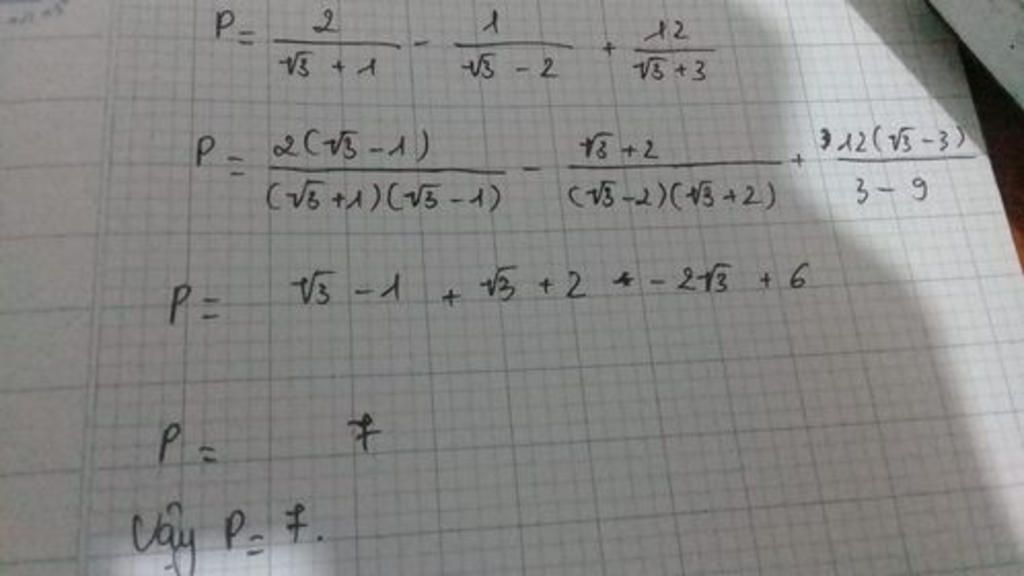 P = 2/(√3 + 1) - 1/(√3 - 2) + 12/(√3 + 3)
P = 2(√3 - 1)/((√3 + 1)(√3 - 1)) - (√3 + 2)/((√3 - 2)(√3 + 2)) + 12(√3 - 3)/(3 - 9)
P = √3 - 1 + √3 + 2 - 2√3 + 6
P = 7
Vậy P = 7.